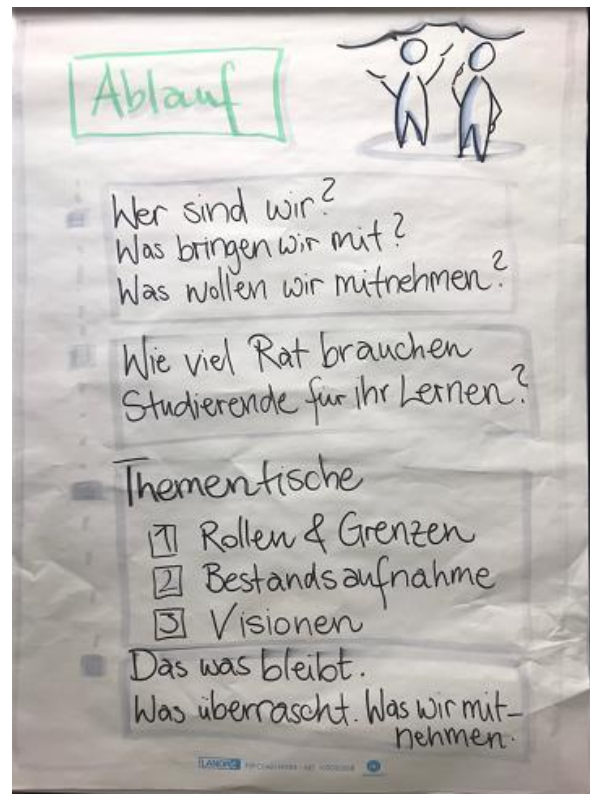 Ablauf
Wer sind wir?
Was bringen wir mit?
Was wollen wir mitnehmen?
Wie viel Rat brauchen
Studierende für ihr Lernen?
Thementische
1 Rollen & Grenzen
2 Bestandsaufnahme
3 Visionen
Das was bleibt.
Was überrascht. Was wir mit-
nehmen.